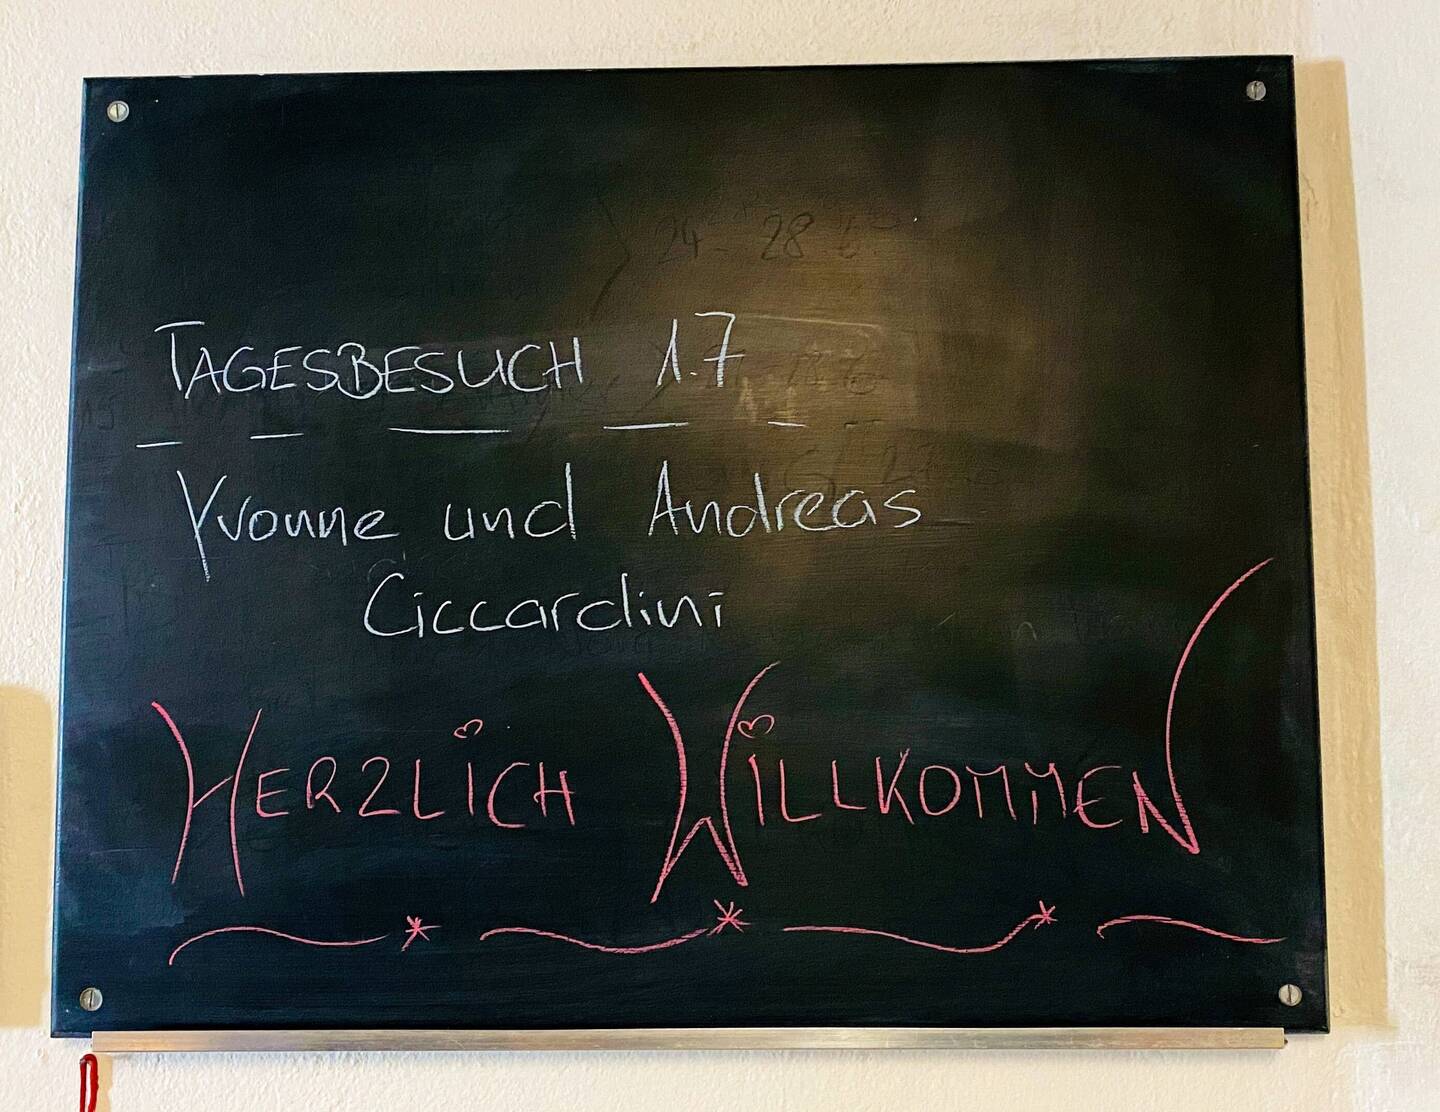 24 - 28
TAGESBESUCH 1.7
Yvonne und Andreas
Ciccardini
HERZLICH WILLKOMMEN